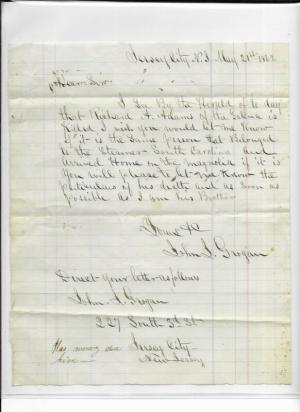 Jersey City N.J. May 21st
Dear Sir
I See By the Herald of to day
that Richard A. Adams of the Galena is
Killed I wish you would let me Know
if it is the Same person that Belonged
to the Steamer South Carolina and
arrived Home in the Magnolia if it is
you will please to let me Know the
particulars of his death and as soon as
posible as I am his Brother
Yours &c
John S. Grogan
Direct your letter as follows
John S. Grogan
227 South 3d St
Jersey City
New Jersey